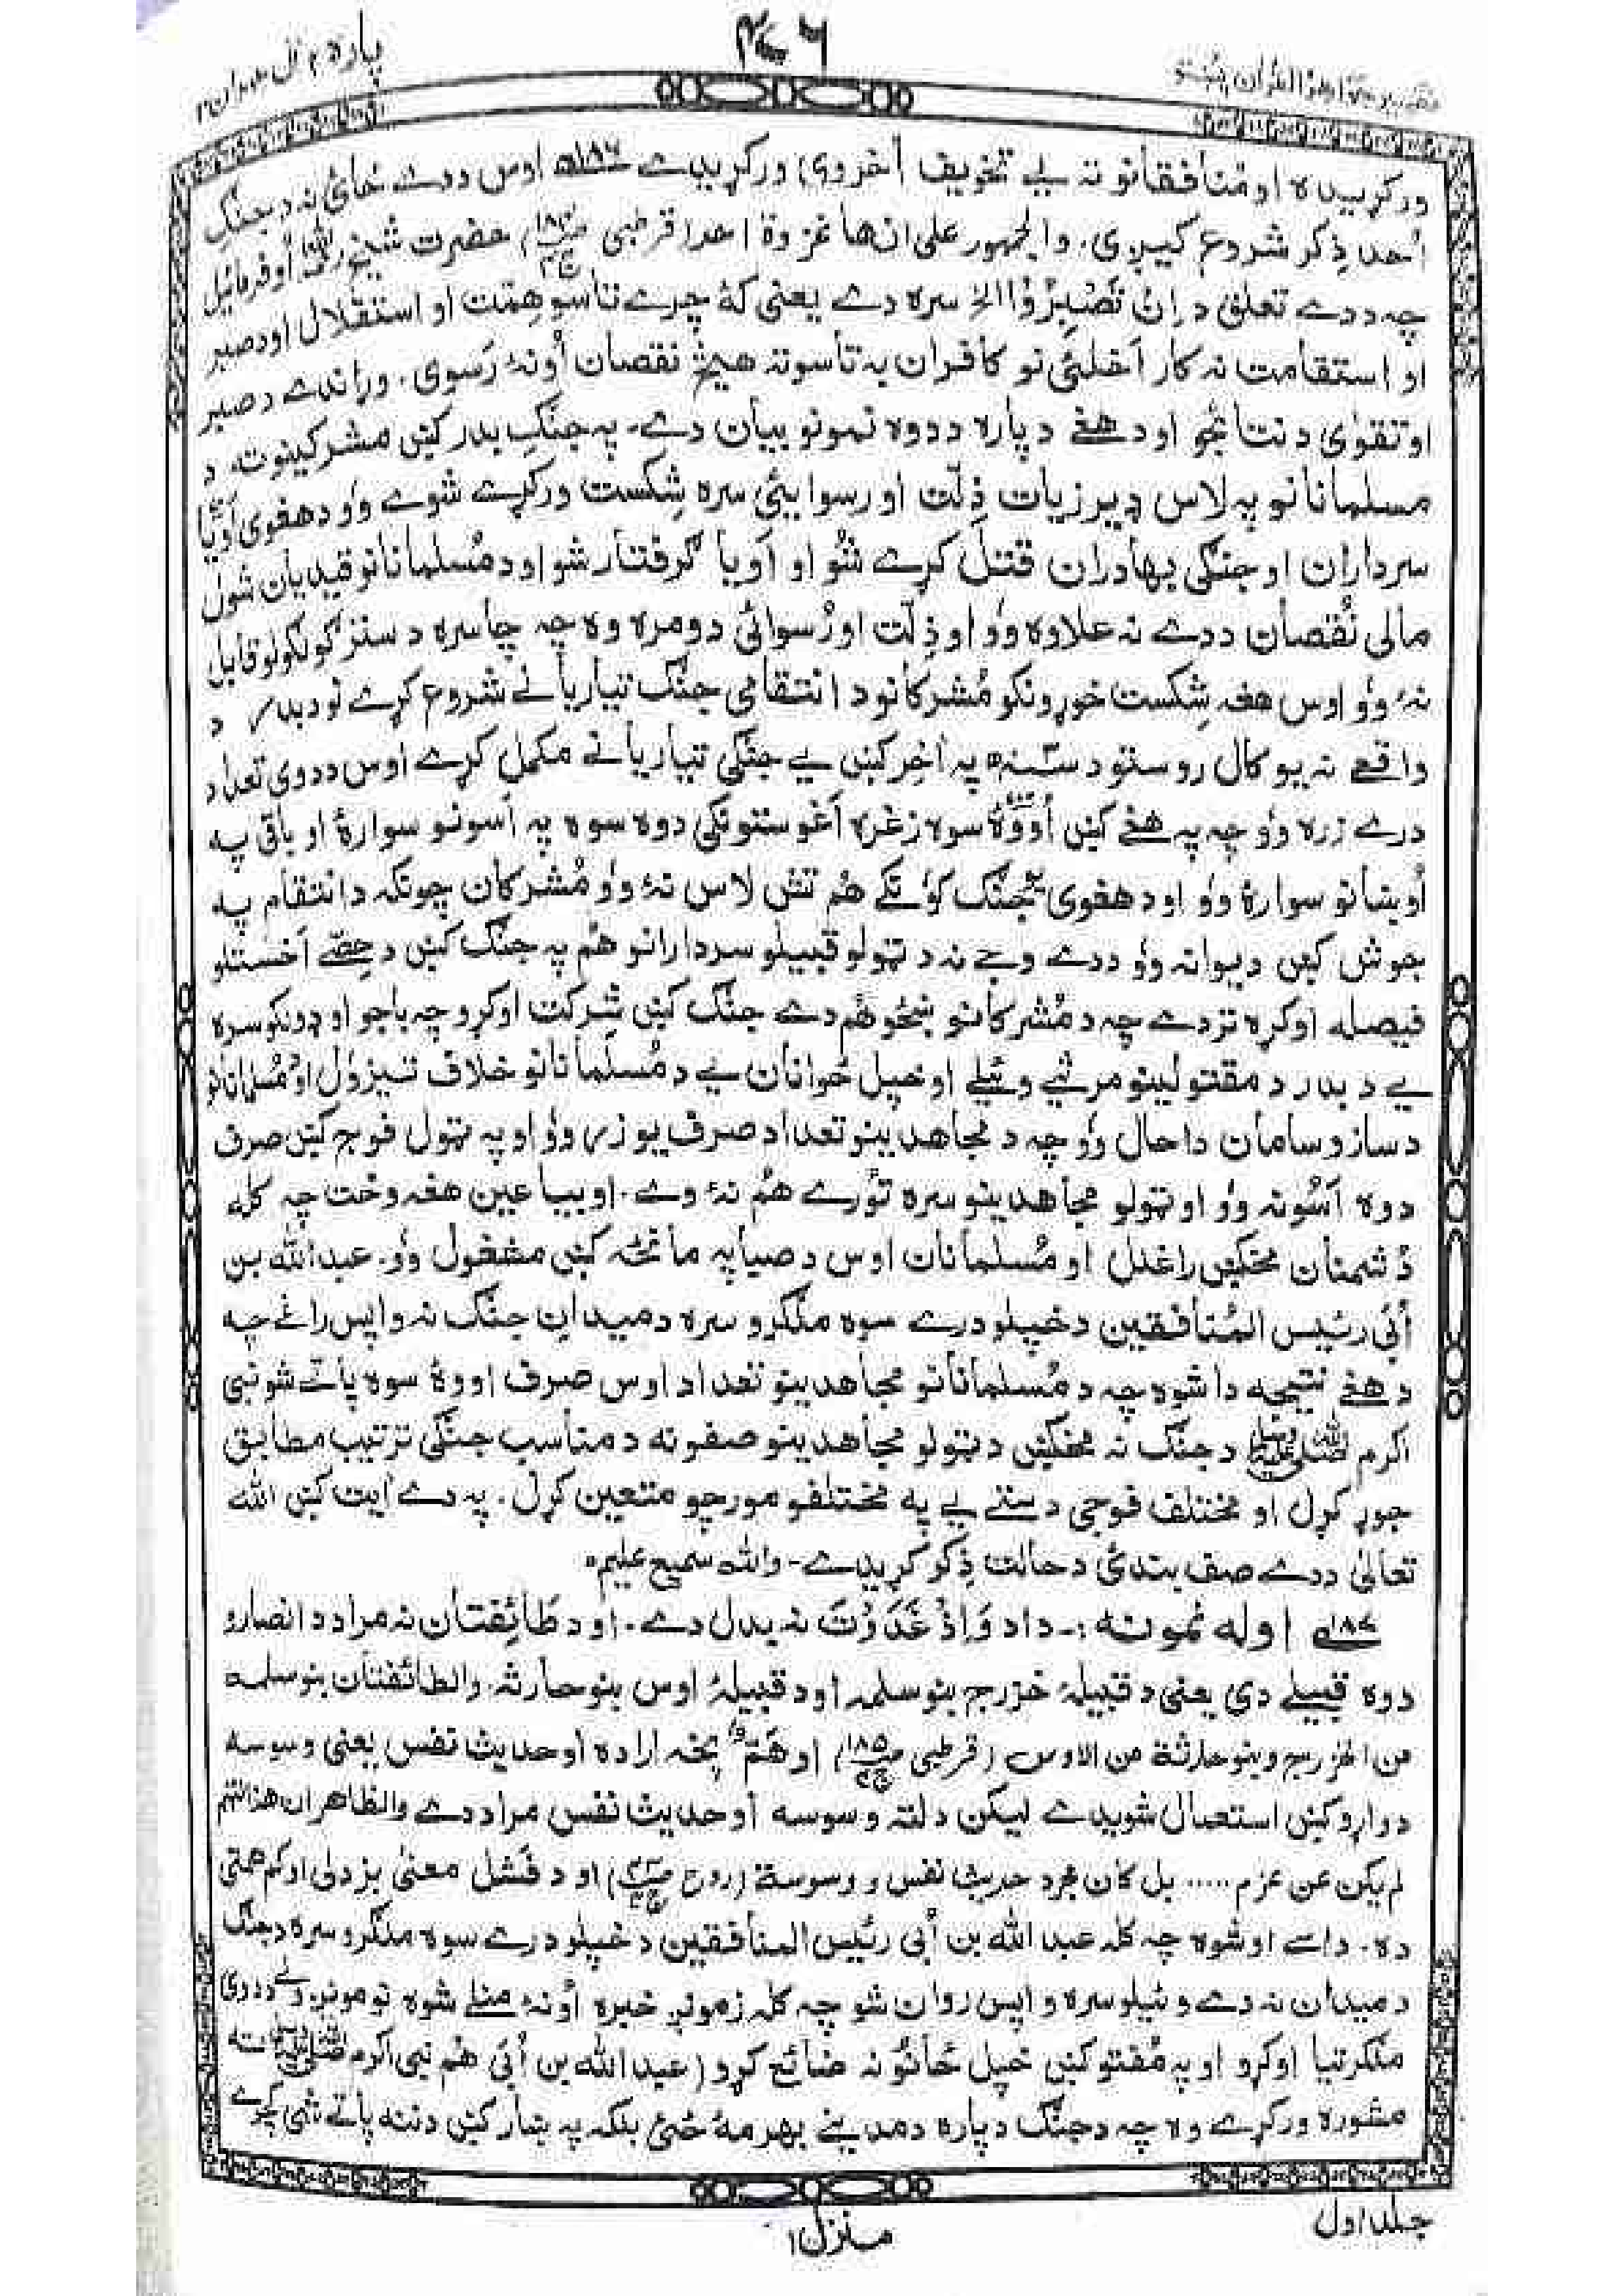 پاره ۴ اٰل عمران ۳
۴۷۶
تفسیر جواهر القرآن پښتو
ورکړیده او منافقانو ته یې تخویف اُخروی ورکړیدے اوس ددے ځائ نه د جنګِ
اُحد ذِکر شروع کیږی. والجمهور علی انها غزوة احد (قرطبی ص۱۸۴ ج۴) حضرت شیخ اوفرمائیل
چه ددے تعلق د اِنْ تَصْبِرُوْا الخ سره دے یعنی که چرے تاسو هِمّت او استقلال او د صبر
او استقامت نه کار اَخلئ نو کافران به تاسو ته هیڅ نقصان اُونۀ رَسوی. وړاندے د صبر
او تقوٰی د نتائجو او د هغے دپاره د دوه نمونو بیان دے۔ په جنګِ بدر کښ مشرکینو ته د
مسلمانانو په لاس ډیر زیات ذِلّت او رسوایئ سره شِکست ورکړے شوے وُو د هغوی اَویا
سرداران او جنګی بهادران قتل کړے شو او اَویا ګرفتار شو او د مُسلمانانو قیدیان شول
مالی نُقصان ددے نه علاوه وُو او ذِلّت او رُسوائی دومره وه چه چا سره د سترګو لګولو قابل
نۀ وُو اوس هغه شِکست خوړونکو مُشرکانو د انتقامی جنګ تیاریانے شروع کړے نو د بدر د
واقعے نه یو کال روستو د سنه په اٰخِر کښ یے جنګی تیاریانے مکمل کړے اوس د دوی تعداد
درے زره وُو چه په هغے کښ اُووۀ سوه زغره اَغوستونکی دوه سوه په اَسونو سوارۀ او باقی په
اُوښانو سوارۀ وُو او د هغوی جنګ کوُنکے هُم تش لاس نۀ وُو مُشرکان چونکه د انتقام په
جوش کښ دیوانه وُو ددے وجے نه د ټولو قبیلو سردارانو هُم په جنګ کښ د حِصّے اَخستلو
فیصله اوکړه تردے چه د مُشرکانو ښځو هُم دے جنګ کښ شِرکت اوکړو چه باجو او ډونکو سره
یے د بدر د مقتولینو مرثیے وئیلے او خپل ځوانان یے د مُسلمانانو خلاف تیزول او د مُسلمانانو
د ساز و سامان دا حال وُو چه د مُجاهدینو تعداد صرف یو زر وُو او په ټول فوج کښ صرف
دوه اَسُونه وُو او ټولو مجاهدینو سره تُورے هُم نۀ وے. او بیا عین هغه وخت چه کله
دُشمنان مخکښ راغلل او مُسلمانان اوس د صبا په مانځه کښ مشغول وُو. عبدالله بن
اُبَی رئیس المُنافقین د خپلو درے سوه ملګرو سره د میدانِ جنګ نه واپس راغے چه
د هغے نتیجه دا شوه چه د مُسلمانانو مجاهدینو تعداد اوس صرف اووۀ سوه پاتے شو نبی
اکرم صلی الله علیه وسلم د جنګ نه مخکښ د ټولو مجاهدینو صفونه د مناسب جنګی ترتیب مطابق
جوړ کړل او مختلف فوجی دستے یے په مختلفو مورچو متعین کړل. په دے اٰیت کښ الله
تعالیٰ ددے صف بندئ د حالت ذِکر کړیدے۔ والله سمیع علیم.
۱۸۷ے اوله نمونه :۔ دا د وَاِذْ غَدَوْتَ نه بدل دے. او د طَائِفتَان نه مراد د انصارو
دوه قبیلے دی یعنی د قبیلۀ خزرج بنو سلمه او د قبیلۀ اوس بنو حارثه. والطائفتان بنو سلمه
من الخزرج وبنو حارثة من الاوس (قرطبی ص۱۸۵ ج۴) او هَمّ پخه اراده او حدیث نفس یعنی وسوسه
دواړو کښ استعمال شویدے لیکن دلته وسوسه او حدیث نفس مراد دے والظاهر ان هذا الهم
لم یکن عن عزم ..... بل کان مجرد حدیث نفس و وسوسة (روح ج۴) او د فَشل معنیٰ بزدلی او کم همتی
ده. داسے اوشوه چه کله عبد الله بن اُبی رئیس المنافقین د خپلو درے سوه ملګرو سره د جنګ
د میدان نه دے وئیلو سره واپس روان شو چه کله زمونږ خبره اُونۀ منلے شوه نو مونږ ولے د دوی
ملګرتیا اوکړو او په مُفتو کښ خپل ځانونه ضائع کړو (عبدالله بن اُبَی هُم نبی اکرم صلی الله علیه وسلم ته
مشوره ورکړے وه چه د جنګ دپاره د مدینے بهر مۀ ځئ بلکه په ښار کښ دننه پاتے شئ
جلد اول
منزل ۱